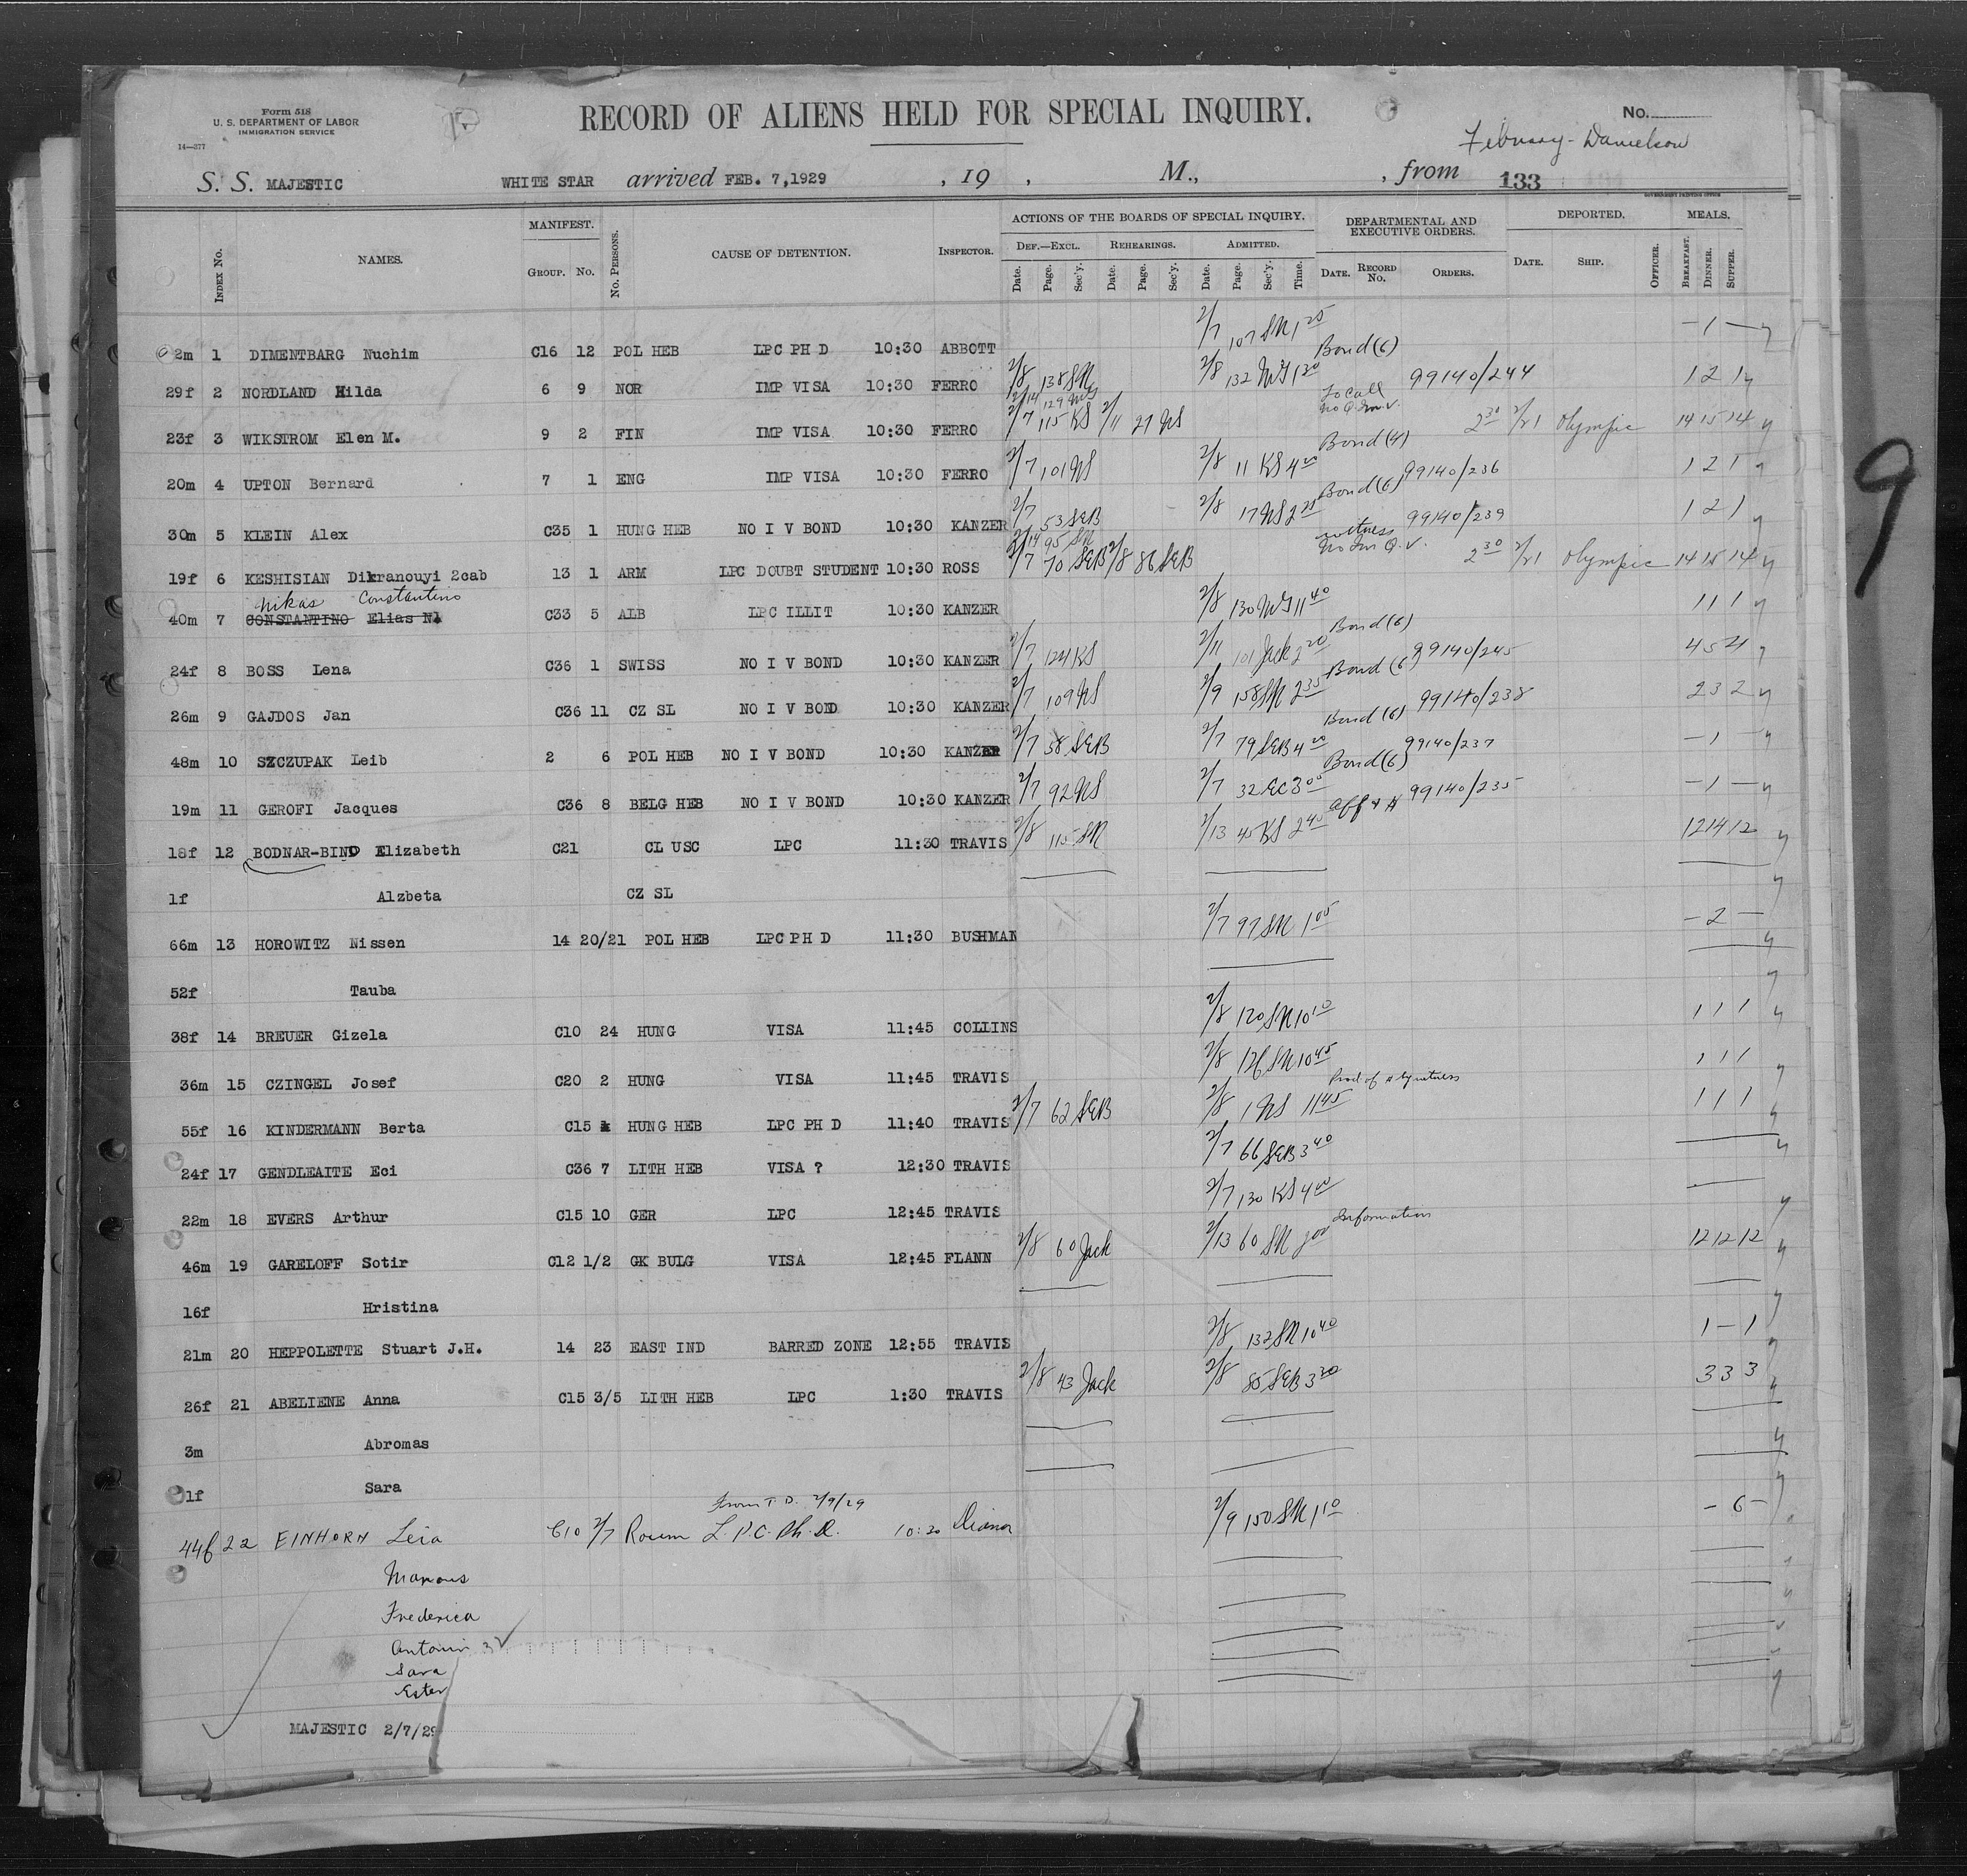 Form 518
U. S. DEPARTMENT OF LABOR
IMMIGRATION SERVICE
14—377
RECORD OF ALIENS HELD FOR SPECIAL INQUIRY.
No.
Danielson
S. S. MAJESTIC WHITE STAR arrived FEB. 7,1929 , 19 , M., , from 133
GOVERNMENT PRINTING OFFICE
INDEX NO. NAMES. MANIFEST. GROUP. NO. NO. PERSONS. CAUSE OF DETENTION. INSPECTOR. ACTIONS OF THE BOARDS OF SPECIAL INQUIRY. DEPARTMENTAL AND EXECUTIVE ORDERS. DEPORTED. MEALS.
DEF.—EXCL. REHEARINGS. ADMITTED.
Date. Page. Sec'y. Date. Page. Sec'y. Date. Page. Sec'y. Time. DATE. RECORD NO. ORDERS. DATE. SHIP. OFFICER. BREAKFAST. DINNER. SUPPER.
2m 1 DIMENTBARG Nuchim C16 12 POL HEB LPC PH D 10:30 ABBOTT 2/7 107 SM 1 25 – 1 –
Bond (6)
29f 2 NORDLAND Hilda 6 9 NOR IMP VISA 10:30 FERRO 2/8 138 SM 2/8 132 1 20 99140/244 1 2 1
2/14 129
23f 3 WIKSTROM Elen M. 9 2 FIN IMP VISA 10:30 FERRO 2/7 115 KS 2/11 27 NS 2 30 2/21 Olympic 14 15 14
Bond (4)
20m 4 UPTON Bernard 7 1 ENG IMP VISA 10:30 FERRO 2/7 101 NS 2/8 11 KS 4 20 99140/236 1 2 1
Bond (6)
30m 5 KLEIN Alex C35 1 HUNG HEB NO I V BOND 10:30 KANZER 2/7 53 SEB 2/8 17 NS 2 25 99140/239 1 2 1
2/14 95 SM witness
19f 6 KESHISIAN Dikranouyi 2cab 13 1 ARM LPC DOUBT STUDENT 10:30 ROSS 2/7 70 SEB 2/8 86 SEB 2 30 2/21 Olympic 14 15 14
Nikas Constantino
40m 7 CONSTANTINO Elias N C33 5 ALB LPC ILLIT 10:30 KANZER 2/8 130 11 40 1 1 1
Bond (6)
24f 8 BOSS Lena C36 1 SWISS NO I V BOND 10:30 KANZER 2/7 124 KS 2/11 101 Jack 2 20 99140/245 4 5 4
Bond (6)
26m 9 GAJDOS Jan C36 11 CZ SL NO I V BOND 10:30 KANZER 2/7 109 NS 2/9 158 SM 2 35 99140/238 2 3 2
Bond (6)
48m 10 SZCZUPAK Leib 2 6 POL HEB NO I V BOND 10:30 KANZER 2/7 58 SEB 2/7 79 SEB 4 20 99140/237 – 1 –
Bond (6)
19m 11 GEROFI Jacques C36 8 BELG HEB NO I V BOND 10:30 KANZER 2/7 92 NS 2/7 32 EC 3 00 99140/235 – 1 –
18f 12 BODNAR-BIND Elizabeth C21 CL USC LPC 11:30 TRAVIS 2/8 115 SM 2/13 45 KS 2 40 12 14 12
1f Alzbeta CZ SL
66m 13 HOROWITZ Nissen 14 20/21 POL HEB LPC PH D 11:30 BUSHMAN 2/7 97 SM 1 05 – 2 –
52f Tauba
38f 14 BREUER Gizela C10 24 HUNG VISA 11:45 COLLINS 2/8 120 SM 10 10 1 1 1
36m 15 CZINGEL Josef C20 2 HUNG VISA 11:45 TRAVIS 2/8 126 SM 10 45 1 1 1
55f 16 KINDERMANN Berta C15 HUNG HEB LPC PH D 11:40 TRAVIS 2/7 62 SEB 2/8 1 NS 11 45 1 1 1
24f 17 GENDLEAITE Eci C36 7 LITH HEB VISA ? 12:30 TRAVIS 2/7 66 SEB 3 40
22m 18 EVERS Arthur C15 10 GER LPC 12:45 TRAVIS 2/7 130 KS 4 00
Information
46m 19 GARELOFF Sotir C12 1/2 GK BULG VISA 12:45 FLANN 2/8 60 Jack 2/13 60 SM 12 12 12
16f Hristina
21m 20 HEPPOLETTE Stuart J.H. 14 23 EAST IND BARRED ZONE 12:55 TRAVIS 2/8 132 SM 10 40 1 – 1
26f 21 ABELIENE Anna C15 3/5 LITH HEB LPC 1:30 TRAVIS 2/8 43 Jack 2/8 85 SEB 3 20 3 3 3
3m Abromas
1f Sara
From T D. 2/9/29
44f 22 EINHORN Leia C10 2/7 Roum L.P.C. Ph. D. 10:30 Diana 2/9 150 SM 1 10 – 6 –
Marcus
Frederica
Antonin
Sara
Ester
MAJESTIC 2/7/29
9